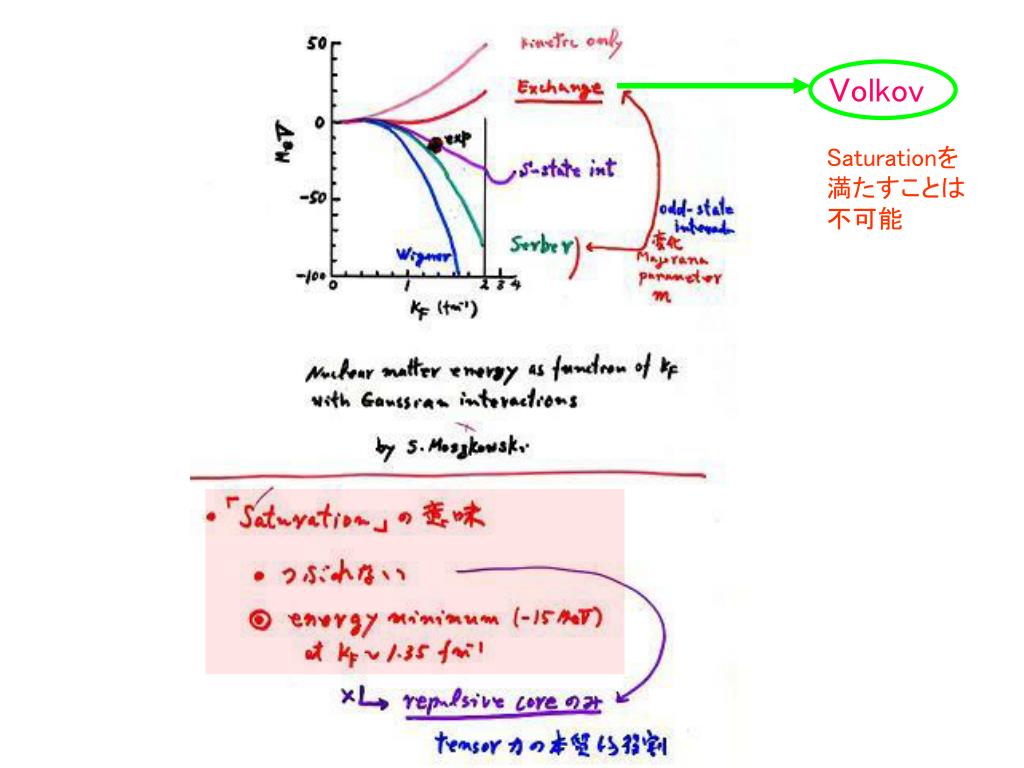 50
0
-50
-100
MeV
0
1
2 3 4
kF (fm⁻¹)
kinetic only
Exchange
exp
S-state int
Wigner
Serber
odd-state
変化
Majorana
parameter
m
Volkov
Saturationを
満たすことは
不可能
Nuclear matter energy as function of kF
with Gaussian interactions
by S. Moszkowski
・「Saturation」の意味
• つぶれない
◎ energy minimum (-15 MeV)
at kF ~ 1.35 fm⁻¹
repulsive core のみ
tensor 力の本質的役割